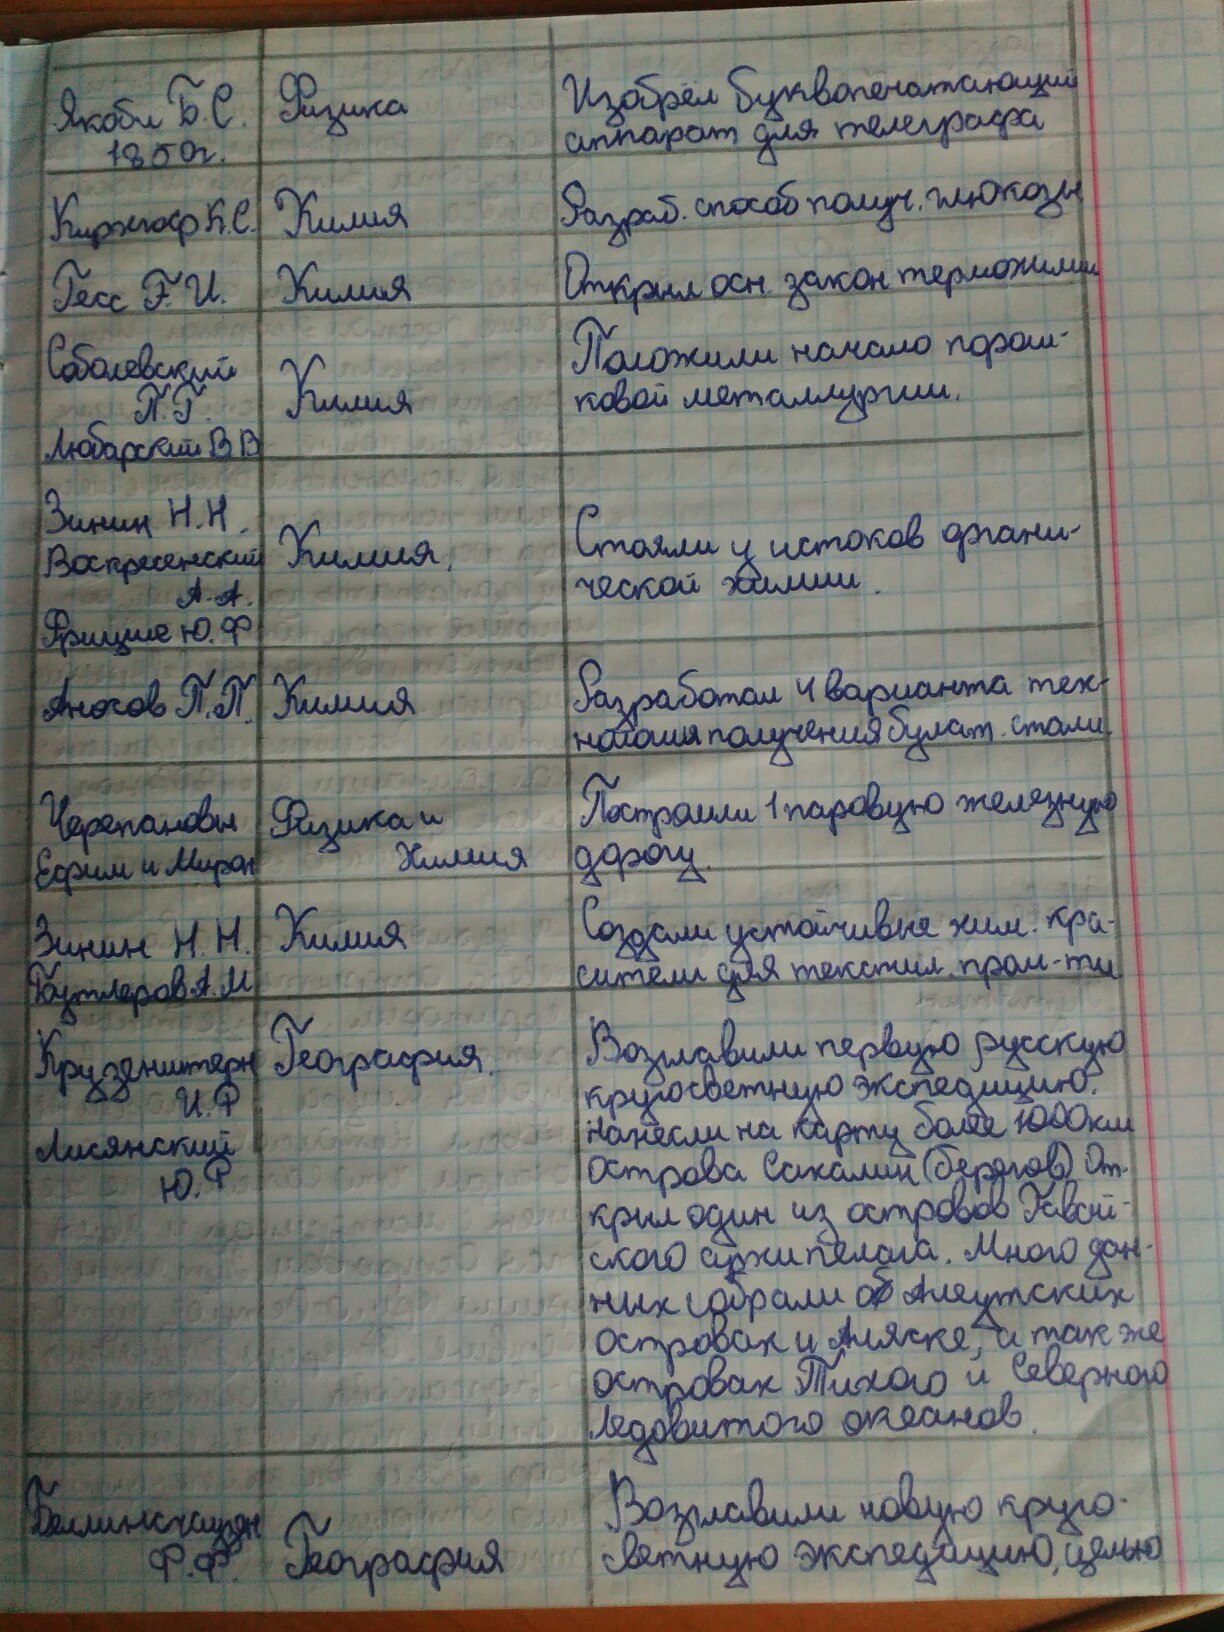 Якоби Б.С.
1850г.
Физика
Изобрёл буквопечатающий
аппарат для телеграфа
Кирхгоф К.С.
Химия
Разраб. способ получ. глюкозы
Гесс Г.И.
Химия
Открыл осн. закон термохимии
Соболевский
П.Г.
Любарский В.В
Химия
Положили начало порош-
ковой металлургии.
Зинин Н.Н.
Воскресенский
А.А.
Фрицше Ю.Ф
Химия.
Стояли у истоков органи-
ческой химии.
Аносов П.П.
Химия
Разработал 4 варианта тех-
нологии получения булат. стали
Черепановы
Ефим и Мирон
Физика и
Химия
Построили 1 паровую железную
дорогу.
Зинин Н.Н.
Бутлеров А.М
Химия
Создали устойчивые хим. кра-
сители для текстил. пром-ти
Крузенштерн
И.Ф
Лисянский
Ю.Ф
География.
Возглавили первую русскую
кругосветную экспедицию.
Нанесли на карту более 1000км
острова Сахалин (берегов) От-
крыл один из островов Гавай-
ского архипелага. Много дан-
ных собрали об Алеутских
островах и Аляске, а так же
островах Тихого и Северного
Ледовитого океанов.
Беллинсгаузен
Ф.Ф.
География
Возглавили новую круго-
светную экспедицию, целью